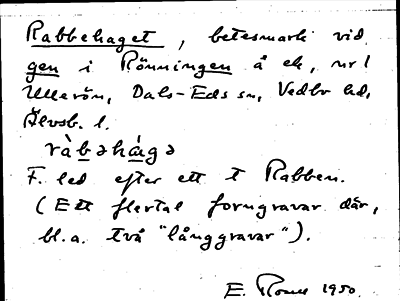 Rabbehaget, betesmark vid
gen i Rönningen å ek, nr 1
Ullerön, Dals-Eds sn, Vedbo hd,
Älvsb. l.
ràbəhágə
F. led efter ett t Rabben.
(Ett flertal forngravar där,
bl.a. två "långgravar").
E. 1950